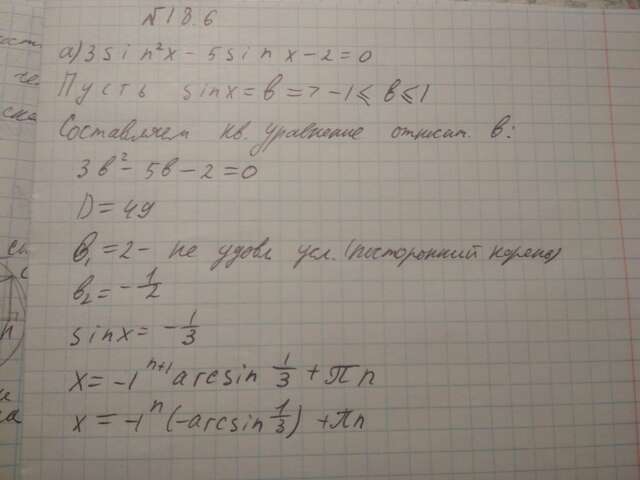 №18.6
а) 3sin²x - 5sin x - 2 = 0
Пусть sinx = в => -1 ⩽ в ⩽ 1
Составляем кв. уравнение относит. в:
3в² - 5в - 2 = 0
D = 49
в₁ = 2 - не удовл усл. (посторонний корень)
в₂ = -1/2
sinx = -1/3
x = -1ⁿ⁺¹ arcsin 1/3 + πn
x = -1ⁿ (-arcsin 1/3) + πn